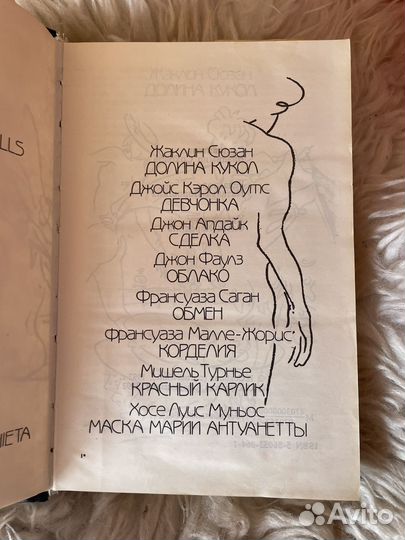 LLS
NIETA
Жаклин Сюзан
ДОЛИНА КУКОЛ
Жаклин Сюзан
ДОЛИНА КУКОЛ
Джойс Кэрол Оутс
ДЕВЧОНКА
Джон Апдайк
СДЕЛКА
Джон Фаулз
ОБЛАКО
Франсуаза Саган
ОБМЕН
Франсуаза Малле-Жорис
КОРДЕЛИЯ
Мишель Турнье
КРАСНЫЙ КАРЛИК
Хосе Луис Муньос
МАСКА МАРИИ АНТУАНЕТТЫ
1*
Avito